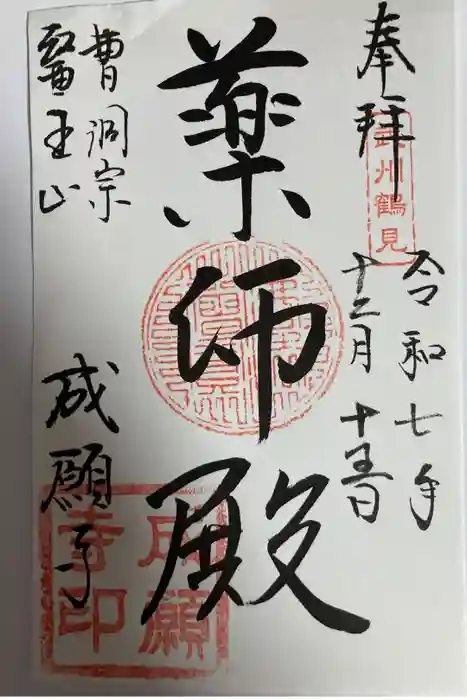 奉拝
武州鶴見
令和七年
十二月十五日
薬師殿
曹洞宗
醫王山
成願寺
成願
寺印